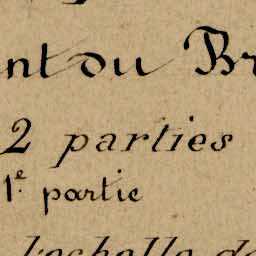 nt du Br
2 parties
1e. partie
l'echelle de